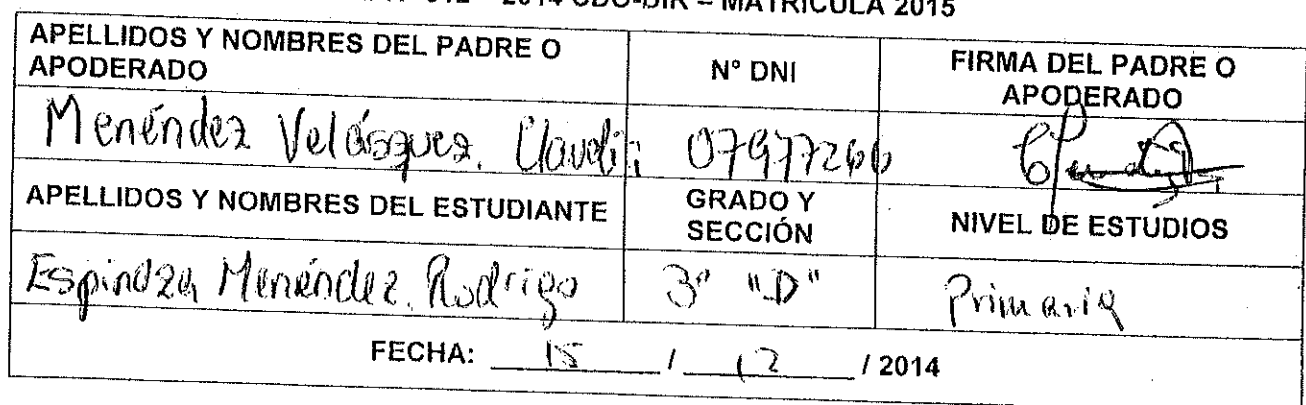 2014 CDG-DIR – MATRICULA 2015
APELLIDOS Y NOMBRES DEL PADRE O APODERADO
N° DNI
FIRMA DEL PADRE O APODERADO
Menéndez Velásquez, Claudia
07977266
APELLIDOS Y NOMBRES DEL ESTUDIANTE
GRADO Y SECCIÓN
NIVEL DE ESTUDIOS
Espinoza Menéndez, Rodrigo
3° "D"
Primaria
FECHA: 15 / 12 / 2014